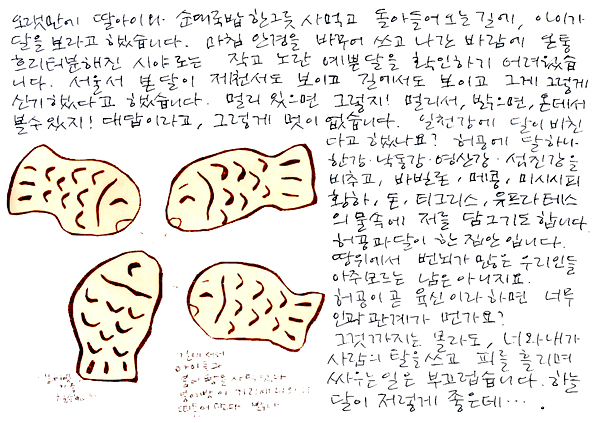 오랫만에 딸아이와 순대국밥 한그릇 사먹고 돌아들어 오는 길에, 아이가
달을 보라고 했습니다. 마침 안경을 바꾸어 쓰고 나간 바람에 온통
흐리터분해진 시야로는 작고 노란 예쁜달을 확인하기 어려웠습
니다. 서울서 본 달이 제천서도 보이고 길에서도 보이고 그게 그렇게
신기했다고 했습니다. 멀리 있으면 그렇지! 멀리서, 밝으면, 온데서
볼 수 있지! 대답이라고, 그렇게 멋이 없습니다. 일천강에 달이 비친
다고 했나요? 허공에 달 하나
한강·낙동강·영산강·섬진강을
비추고, 바빌론, 메콩, 미시시피
황하, 돈, 티그리스, 유프라테스
의 물속에 저를 담그기도 합니다.
허공과 달이 한 집안 입니다.
땅위에서 번뇌가 많은 우리인들
아주모르는 남은 아니지요.
허공이 곧 육신이라 하면 너무
인과관계가 먼가요?
그것까지는 몰라도, 너와 내가
사람의 탈을 쓰고 피를 흘리며
싸우는 일은 부끄럽습니다. 하늘
달이 저렇게 좋은데….
아이들과